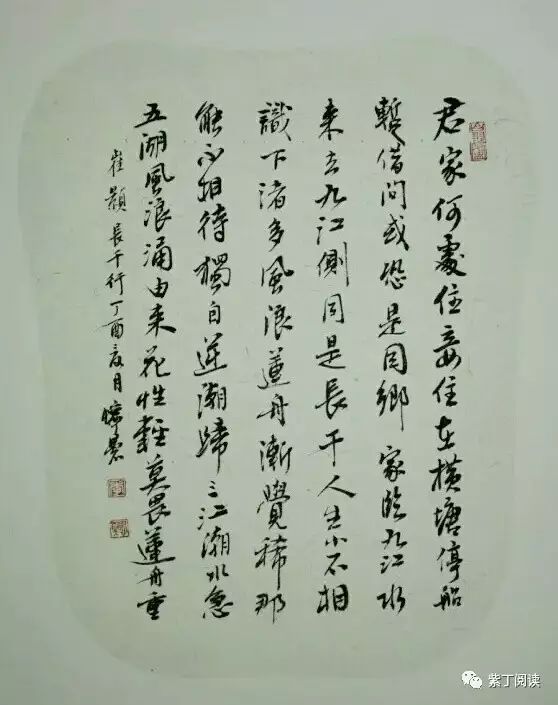 君家何處住妾住在横塘停船
暫借問或恐是同鄉 家臨九江水
来去九江側同是長干人生小不相
識下渚多風浪蓮舟漸覺稀那
能不相待獨自逆潮歸三江潮水急
五湖風浪涌由来花性輕莫畏蓮舟重
崔顥長干行丁酉夏月
紫丁阅读